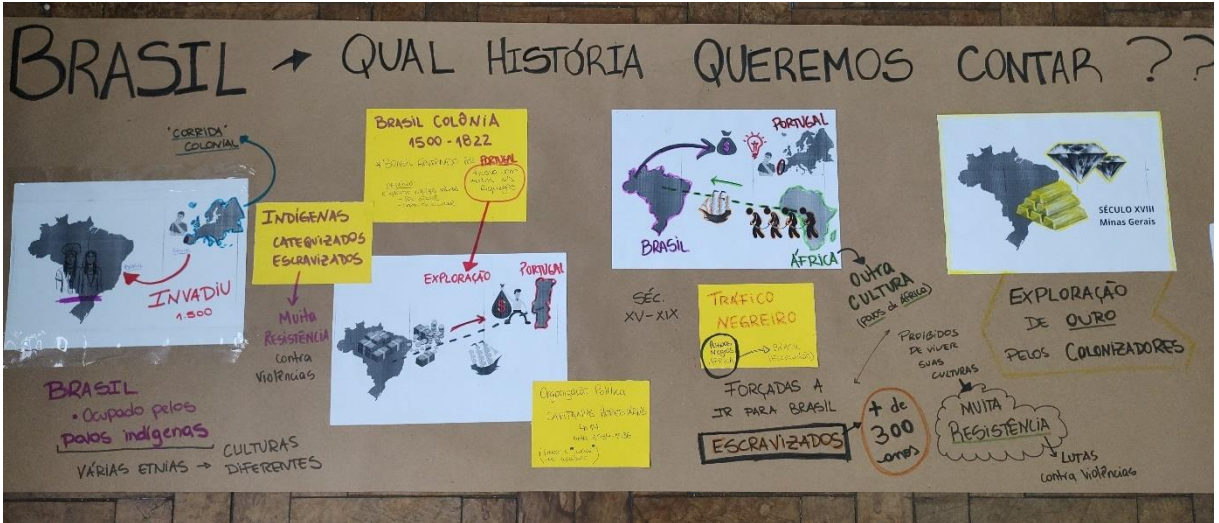 BRASIL → QUAL HISTÓRIA QUEREMOS CONTAR ??
"CORRIDA"
COLONIAL
INVADIU
1.500
BRASIL
• Ocupado pelos
povos indígenas
VÁRIAS ETNIAS → CULTURAS
DIFERENTES
INDÍGENAS
CATEQUIZADOS
ESCRAVIZADOS
Muita
RESISTÊNCIA
contra
violências
BRASIL COLÔNIA
1500 - 1822
PORTUGAL
EXPLORAÇÃO
PORTUGAL
$
Organização Política
CAPITANIAS HEREDITÁRIAS
PORTUGAL
$
BRASIL
ÁFRICA
SÉC.
XV-XIX
TRÁFICO
NEGREIRO
FORÇADAS A
IR PARA BRASIL
ESCRAVIZADOS
+ de
300
anos
OUTRA
CULTURA
(POVOS de ÁFRICA)
PROIBIDOS
DE VIVER
SUAS
CULTURAS
MUITA
RESISTÊNCIA
LUTAS
contra violências
SÉCULO XVIII
Minas Gerais
EXPLORAÇÃO
DE OURO
PELOS COLONIZADORES